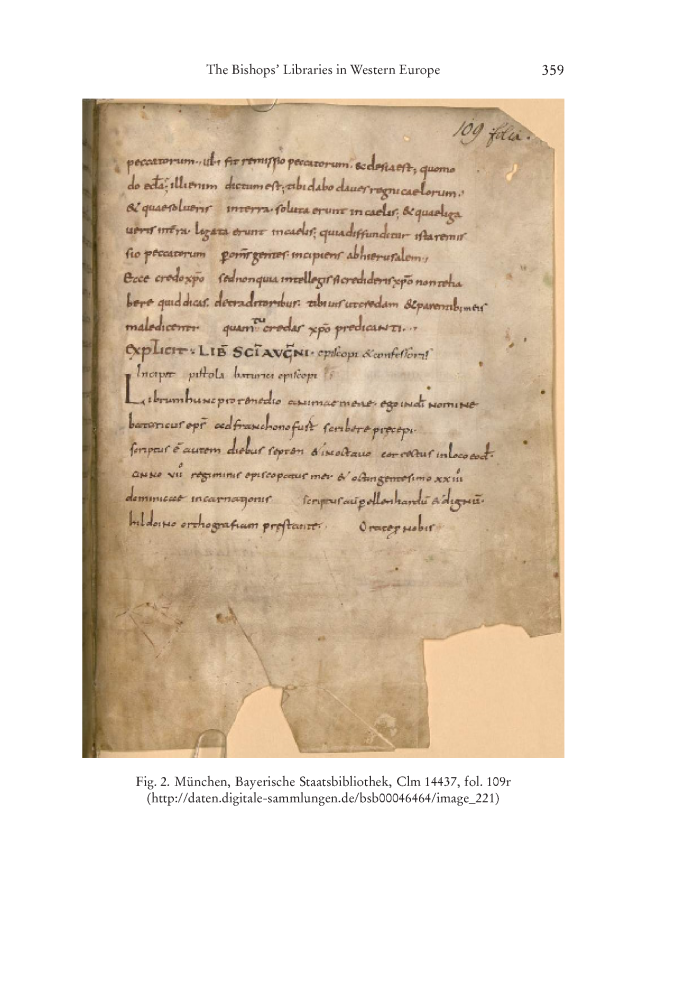 The Bishops' Libraries in Western Europe 359
109 folia.
peccatorum. ubi fit remissio peccatorum. &clesia est; quomo
do eccła; illi enim dictum est; tibi dabo claues regni caelorum;
& quae solueris in terra. soluta erunt in caelis; & quae liga
ueris in terra. legata erunt in caelis; qua diffunditur ista remis
sio peccatorum p om̄s gentes. incipiens ab hierusalem;
Ecce credo xp̄o sed non quia intellegis si credideris xp̄o non te ha
bere quid dicas. de traditoribus. tibi uis ut credam & parentib; meis
maledicenti quam tu credas xp̄o predicanti.
EXPLICIT. LIB̄ SC̄I AUḠNI. episcopi & confessoris
Incipit pistola baturici episcopi
Librum hunc pro remedio animae meae. ego in dī nomine
baturicus ep̄s ad franchonofurt scribere precepi.
scriptus ē autem diebus septem & in octauo correctus in loco eod̄.
anno vii regiminis episcopatus mei & octingentesimo xxiii
dominicae incarnationis scriptus aut p ellenhardū & dignū.
hildoino orthografiam prestante. Orate p nobis
Fig. 2. München, Bayerische Staatsbibliothek, Clm 14437, fol. 109r
(http://daten.digitale-sammlungen.de/bsb00046464/image_221)